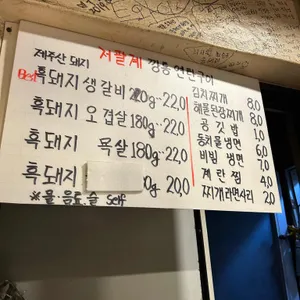 저팔계 명품 연탄구이
제주산 돼지
Best 흑돼지 생갈비 220g-22,0
흑돼지 오겹살 180g-22,0
흑돼지 목살 180g-22,0
흑돼지 0g 20,0
※물.음료.술 self
김치찌개 8,0
해물된장찌개 8,0
공깃밥 1,0
동치물냉면 6,0
비빔냉면 7,0
계란찜 4,0
찌개라면사리 2,0